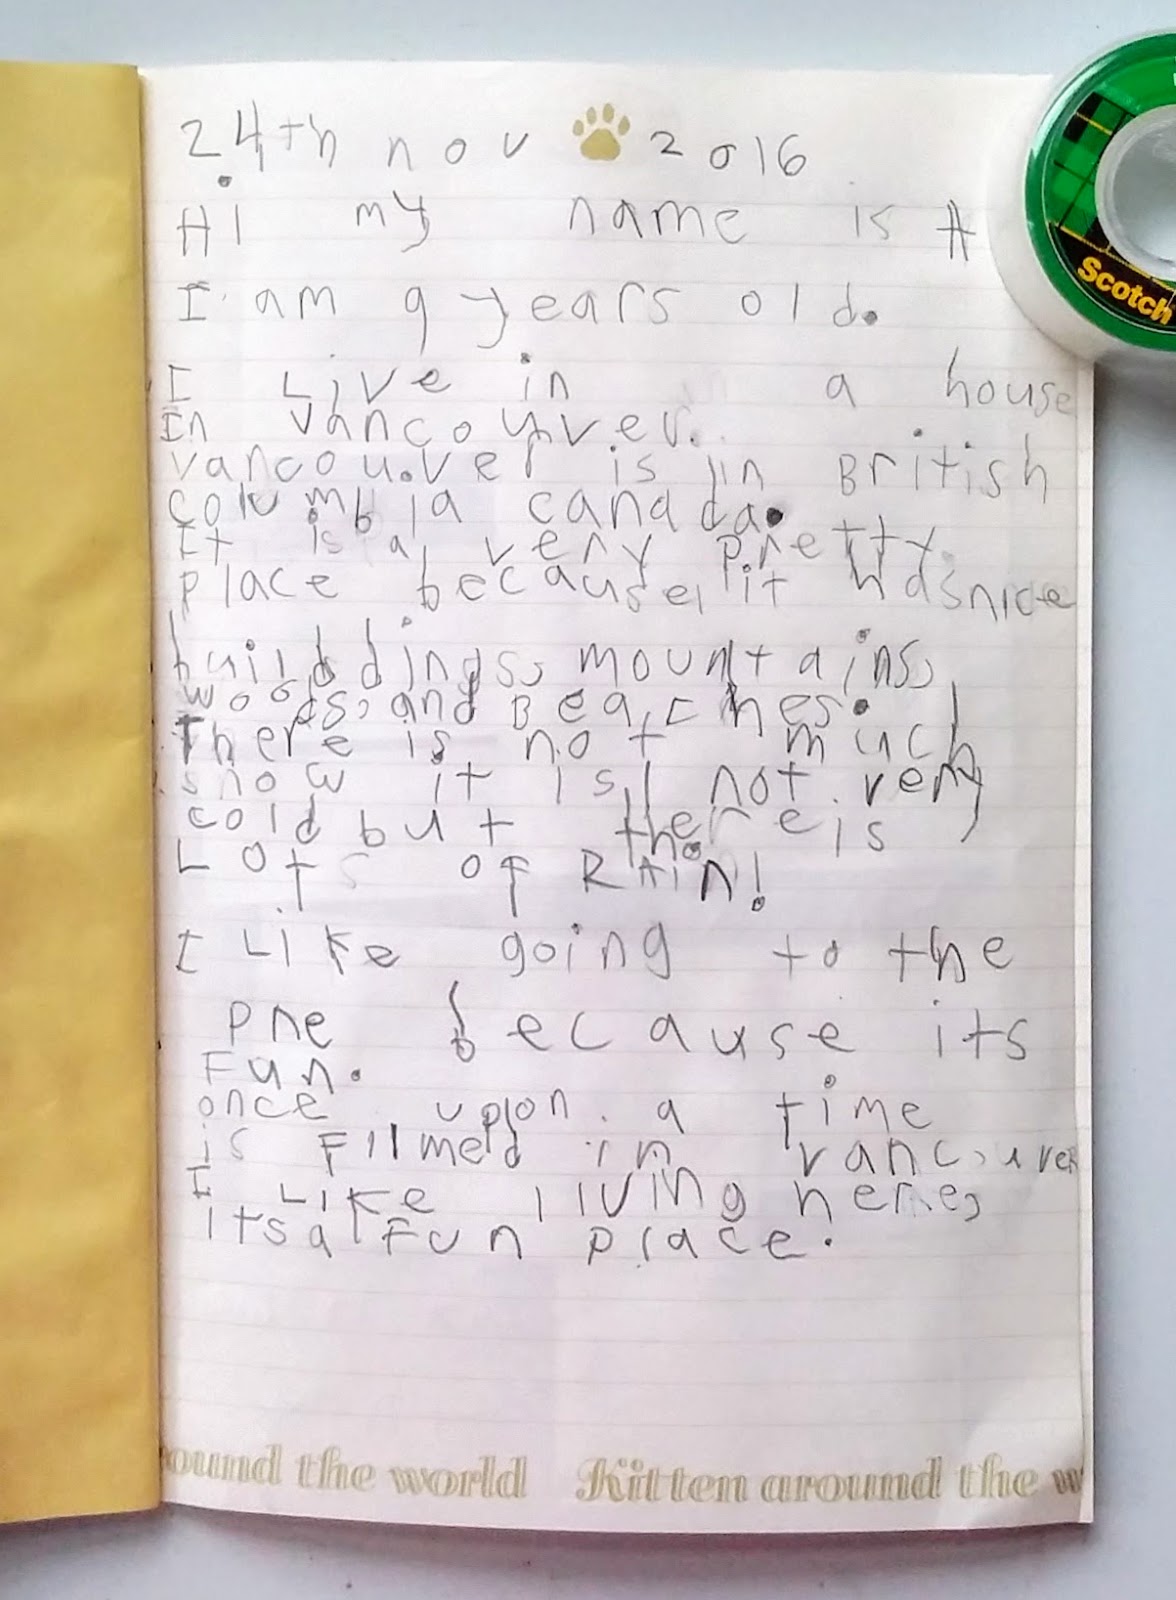 24th nov 2016
Hi my name is A
I am 9 years old.
I Live in a house
In vancouver.
vancouver is in British
columbia canada.
It is a very pretty
place because it has nice
buildings, mountains,
woods, and Beaches.
There is not much
snow it is not very
cold but there is
Lots of RAin!
I Like going to the
pne because its
Fun.
once upon a time
is Filmed in vancouver
I Like living here,
its a fun place.
ound the world Kitten around the w
Scotch